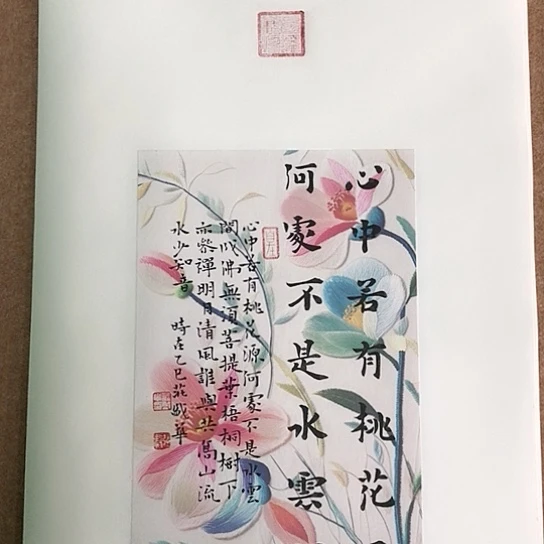 心中若有桃花
何處不是水雲
心中若有桃花源何處不是水雲
間成佛無須菩提葉梧桐樹下
亦參禪明月清風誰與共高山流
水少知音 時在乙巳